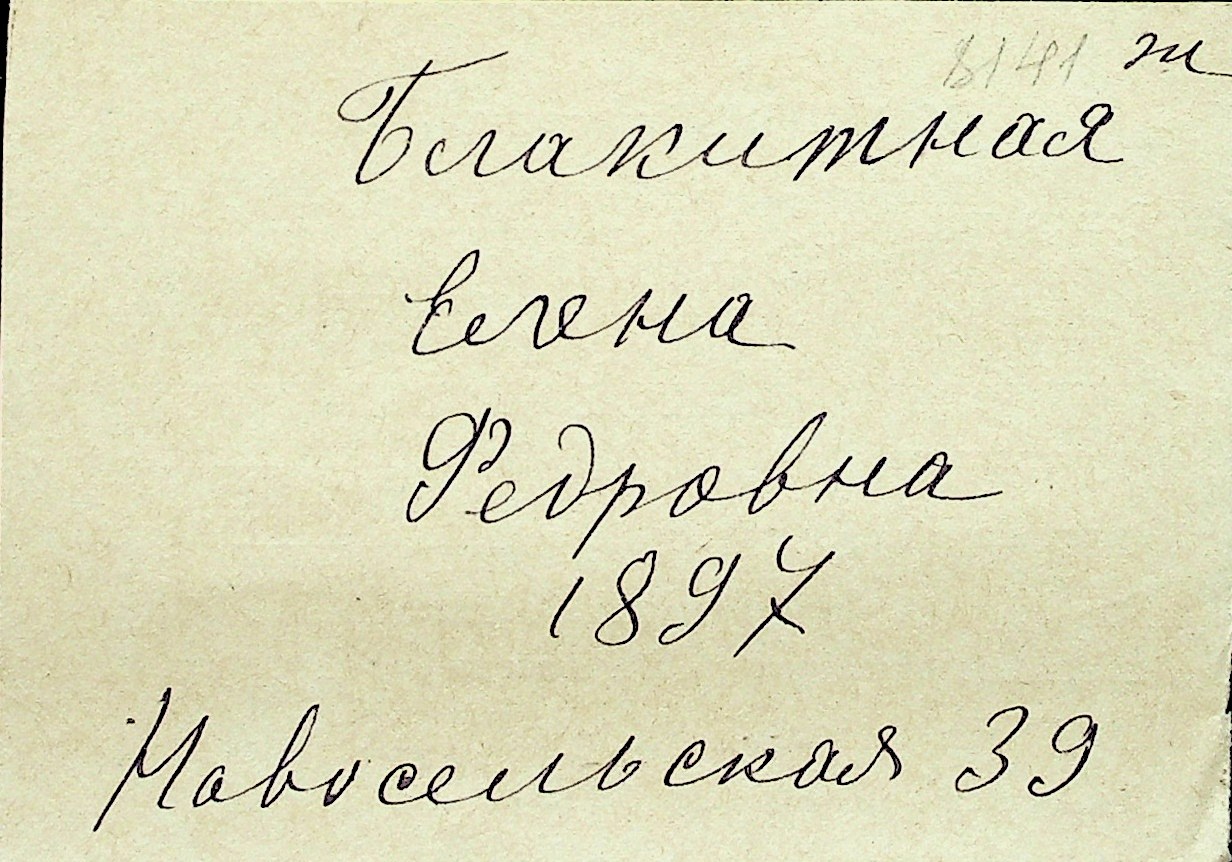 8141 ж
Блакитная
Елена
Федровна
1897
Новосельская 39